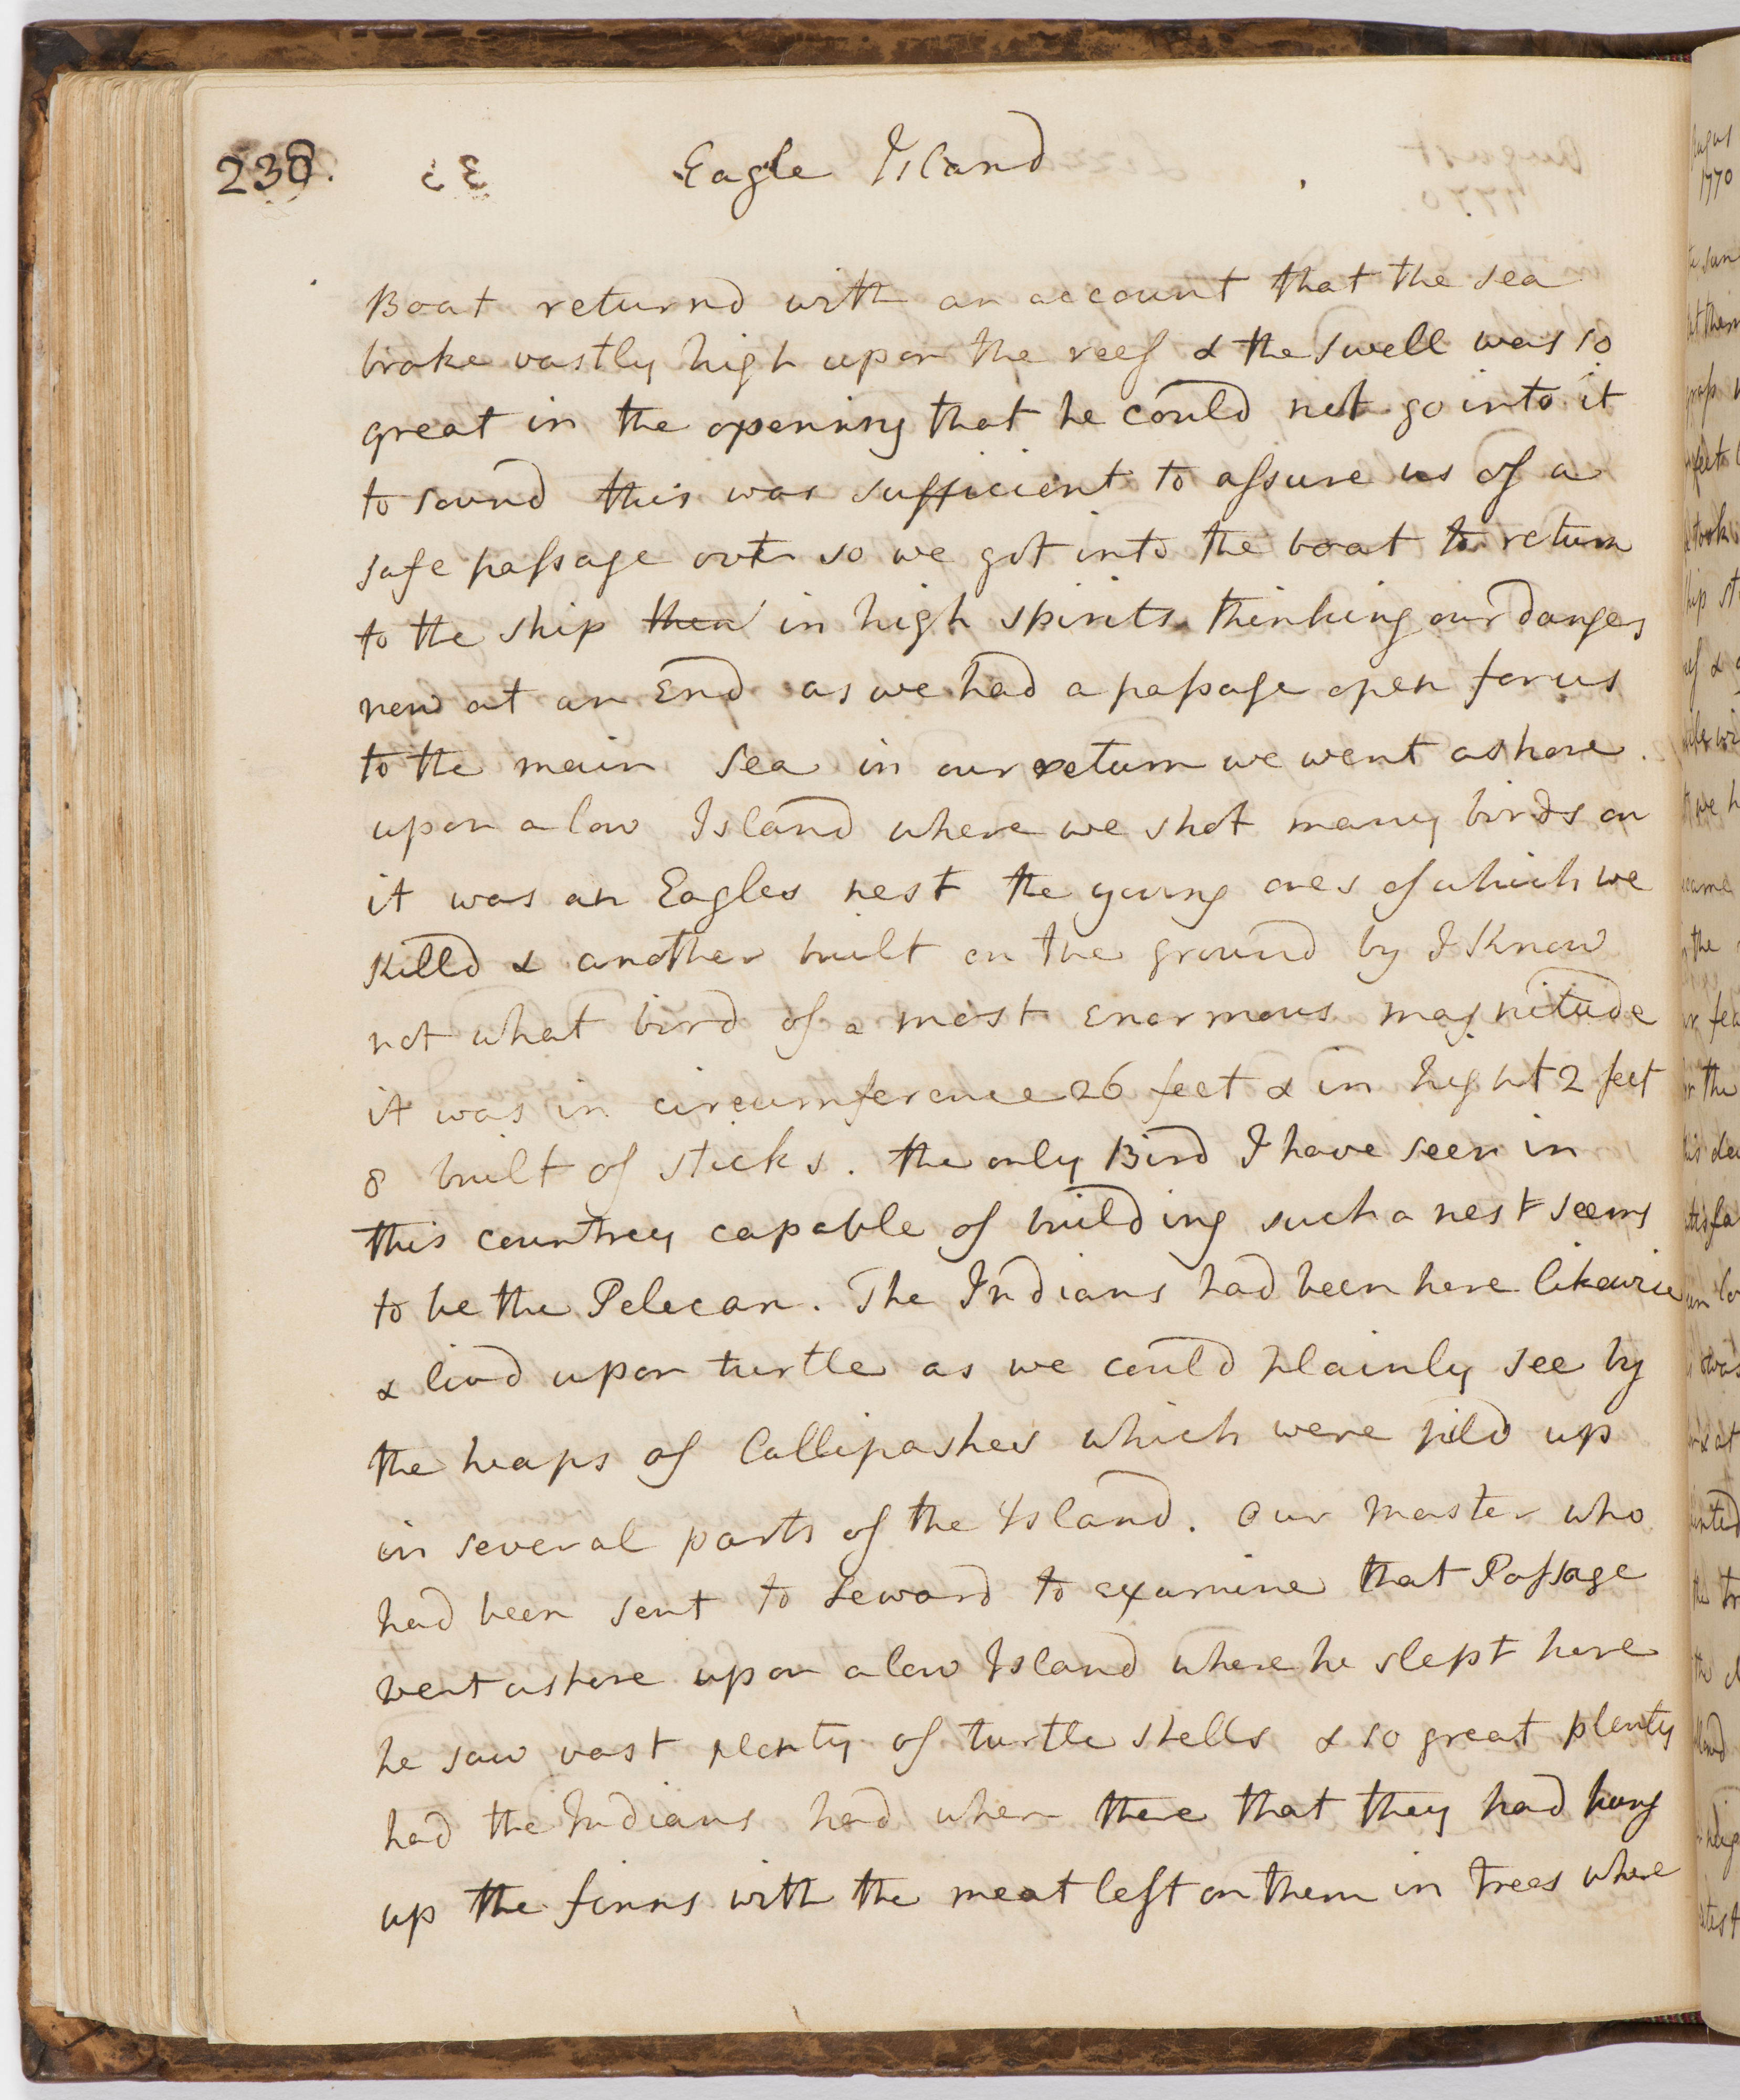 238. Eagle Island
Boat returnd with an account that the sea
broke vastly high upon the reef & the swell was so
great in the opening that he could not go into it
to sound this was sufficient to assure us of a
safe passage out so we got into the boat to return
to the ship then in high spirits thinking our danger
now at an End as we had a passage open for us
to the main Sea in our return we went ashore
upon a low Island where we shot many birds on
it was an Eagles nest the young ones of which we
Killd & another built on the ground by I Know
not what bird of a most enormous magnitude
it was in circumference 26 feet & in hight 2 feet
8 built of sticks. the only Bird I have seen in
this countrey capable of building such a nest seems
to be the Pelecan. The Indians had been here likewise
& livd upon turtle as we could plainly see by
the heaps of Callipashes which were pild up
in several parts of the Island. Our Master who
had been sent to Leward to examine that Passage
went ashore upon a low Island where he slept here
he saw vast plenty of turtle shells & so great plenty
had the Indians had when there that they had hung
up the finns with the meat left on them in trees where
August
1770